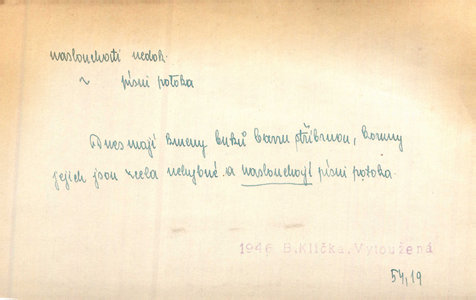 naslouchati nedok.
~ písni potoka
Dnes mají kmeny buků barvu stříbrnou, koruny
jejich jsou zcela nehybné a naslouchají písni potoka.
1946 B.Klička.Vytoužená
54,19